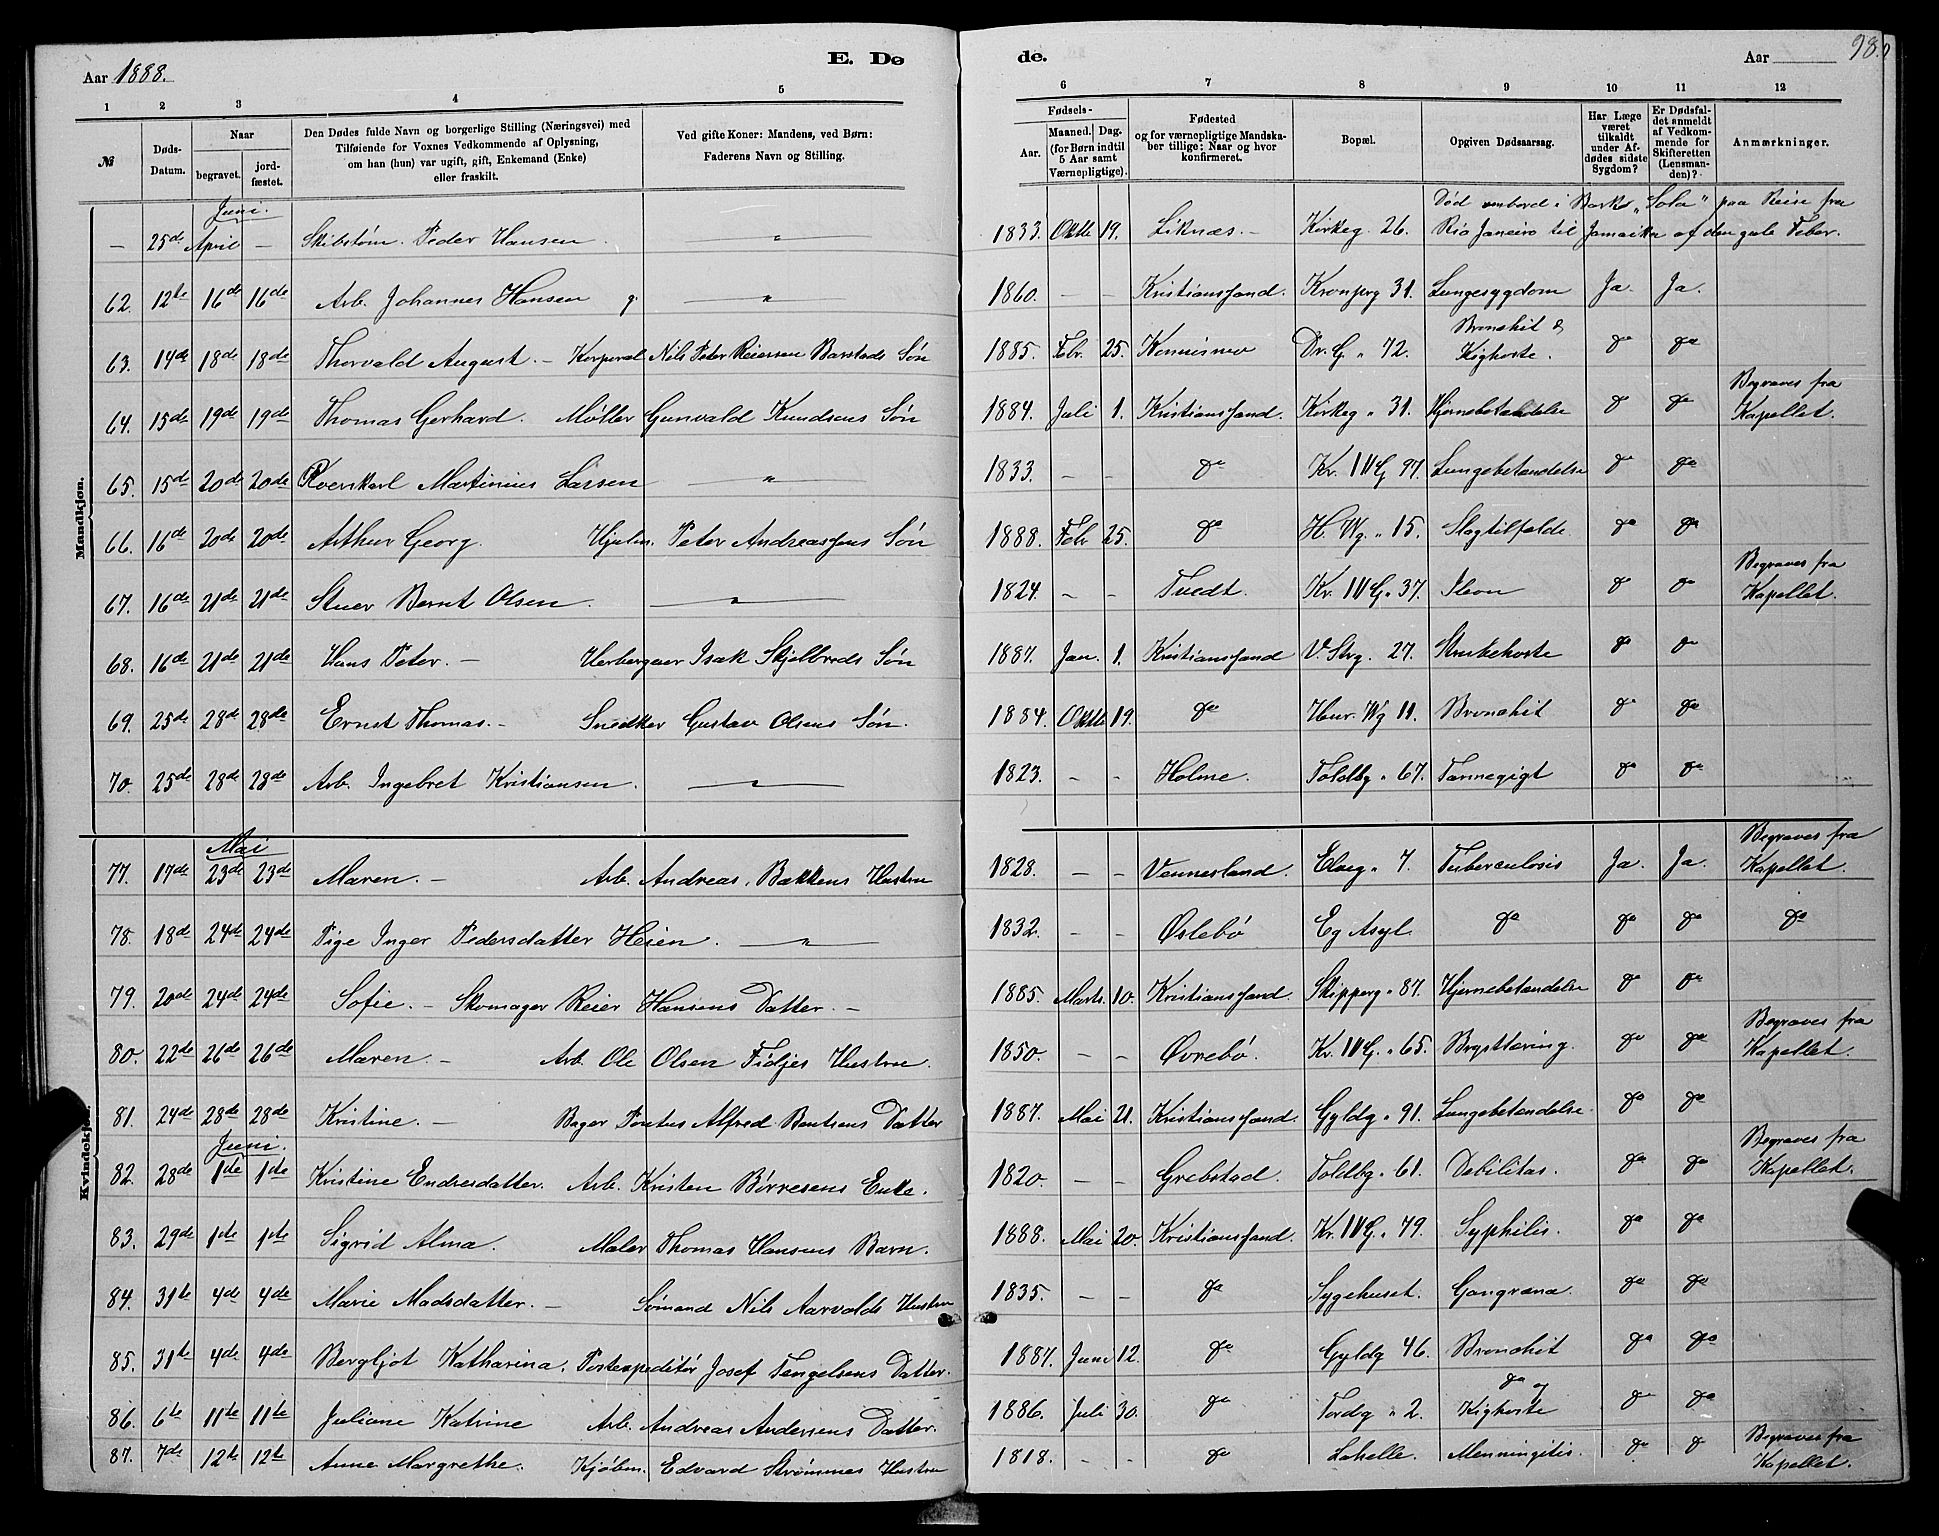 Aar 1888.
E. Dø
de.
Aar
98.
1 2 3 4 5 6 7 8 9 10 11 12
№
Døds-Datum.
Naar
begravet.
jordfæstet.
Den Dødes fulde Navn og borgerlige Stilling (Næringsvei) med
Tilføiende for Voxnes Vedkommende af Oplysning,
om han (hun) var ugift, gift, Enkemand (Enke)
eller fraskilt.
Ved gifte Koner: Mandens, ved Børn:
Faderens Navn og Stilling.
Fødsels-
Aar.
Maaned. Dag.
(for Børn indtil
5 Aar samt
Værnepligtige).
Fødested
og for værnepligtige Mandska-
ber tillige: Naar og hvor
konfirmeret.
Bopæl.
Opgiven Dødsaarsag.
Har Læge
været
tilkaldt
under Af-
dødes sidste
Sygdom?
Er Dødsfal-
det anmeldt
af Vedkom-
mende for
Skifteretten
(Lensman-
den)?
Anmærkninger.
Mandkjøn.
Juni.
– 25de April – Skibstøm. Peder Hansen. – " – 1833. Oktb 19. Liknæs. – Kirkeg. 26. Død ombord i Bark "Sola" paa Reise fra
Rio Janeiro til Jamaika af den gule Feber.
62. 12te 16de 16de Arb. Johannes Hansen g. – " – 1860. – – Kristianssand. Kronprg 31. Lungesygdom Ja. Ja.
63. 14de 18de 18de Thorvald August. – Korporal Nils Peter Reiersen Barstads Søn 1885. Febr. 25. Konnismo Dr. G " 72. Bronchit &
Kighoste. do do
64. 15de 19de 19de Thomas Gerhard. Møller Gunvald Knudsens Søn 1884. Juli 1. Kristianssand. Kirkeg " 31. Hjernebetændelse do do Begraves fra
Kapellet.
65. 15de 20de 20de Martinius Larsen – " – 1833. – – do Kr. IV G 97. Lungebetændelse do do
66. 16de 20de 20de Arthur Georg. Hjulm. Peter Andreassens Søn 1888. Febr 25. do H. Wg. " 15. Slagtilfælde. do do
67. 16de 21de 21de Stuer Bernt Olsen. – " – 1824. – – Tvedt. Kr. IV G. " 37. Ileon do do Begraves fra
Kapellet.
68. 16de 21de 21de Hans Peter. – Herbergeer Isak Skjelbreds Søn 1887. Jan. 1. Kristianssand V. Strg. 27. Strubehoste do do
69. 25de 28de 28de Ernst Thomas. – Snedker Gustav Olsens Søn. 1884. Oktb 19. do Henr. Wg 11. Bronchit do do
70. 25de 28de 28de Arb. Ingebret Kristiansen. – " – 1823. – – Holme. Toldbg. " 67. Tarmegigt do do
Kvindekjøn.
Mai
77. 17de 23de 23de Maren. – Arb. Andreas. Bakkens Hustru 1828. – – Vennesland. Elveg " 7. Tuberculosis Ja. Ja. Begraves fra
Kapellet.
78. 18de 24de 24de Pige Inger Pedersdatter Heien. – " – 1832. – – Øslebø Eg Asyl. do do do do
79. 20de 24de 24de Sofie. – Skomager Reier Hansens Datter. – 1885. Marts. 10. Kristianssand. Skipperg " 87. Hjernebetændelse do do
80. 22de 26de 26de Maren. – Arb. Ole Olsen Fidjes Hustru. 1850. – – Øvrebø. Kr. IV G. " 65. Brysttæring. do do Begraves fra
Kapellet.
81. 24de 28de 28de Kristine. – Bager Pontus Alfred Bentsens Datter 1887. Mai 21. Kristianssand. Gyldg " 91. Lungebetændelse. do do
Juni.
82. 28de 1ste 1ste Kristine Endresdatter. Arb. Kristen Børresens Enke. 1820. – – Grebstad. Toldbg " 61. Debilitas. do do Begraves fra
Kapellet.
83. 29de 1ste 1ste Sigrid Alma. Maler Thomas Hansens Barn. 1888. Mai 20. Kristianssand. Kr. IV G. " 79. Syphilis. do do
84. 31te 4de 4de Marie Madsdatter. – Sømand Nils Aarvolds Hustru 1835. – – do Sygehuset. Gangræna. do do
85. 31te 4de 4de Bergljot Katharina. Postexpeditør Josef Tengelsens Datter. 1887. Juni 12. do Gyldg 46. Bronchit do do
86. 6te 11te 11te Juliane Katrine Arb. Andreas Andersens Datter. 1886. Juli 30. do Tordg " 2. do og
Kighoste do do
87. 7de 12te 12te Anne Margrethe. Kjøbm. Edvard Strømmes Hustru 1818. – – do Lahelle. Menningitis. do do Begraves fra
Kapellet.